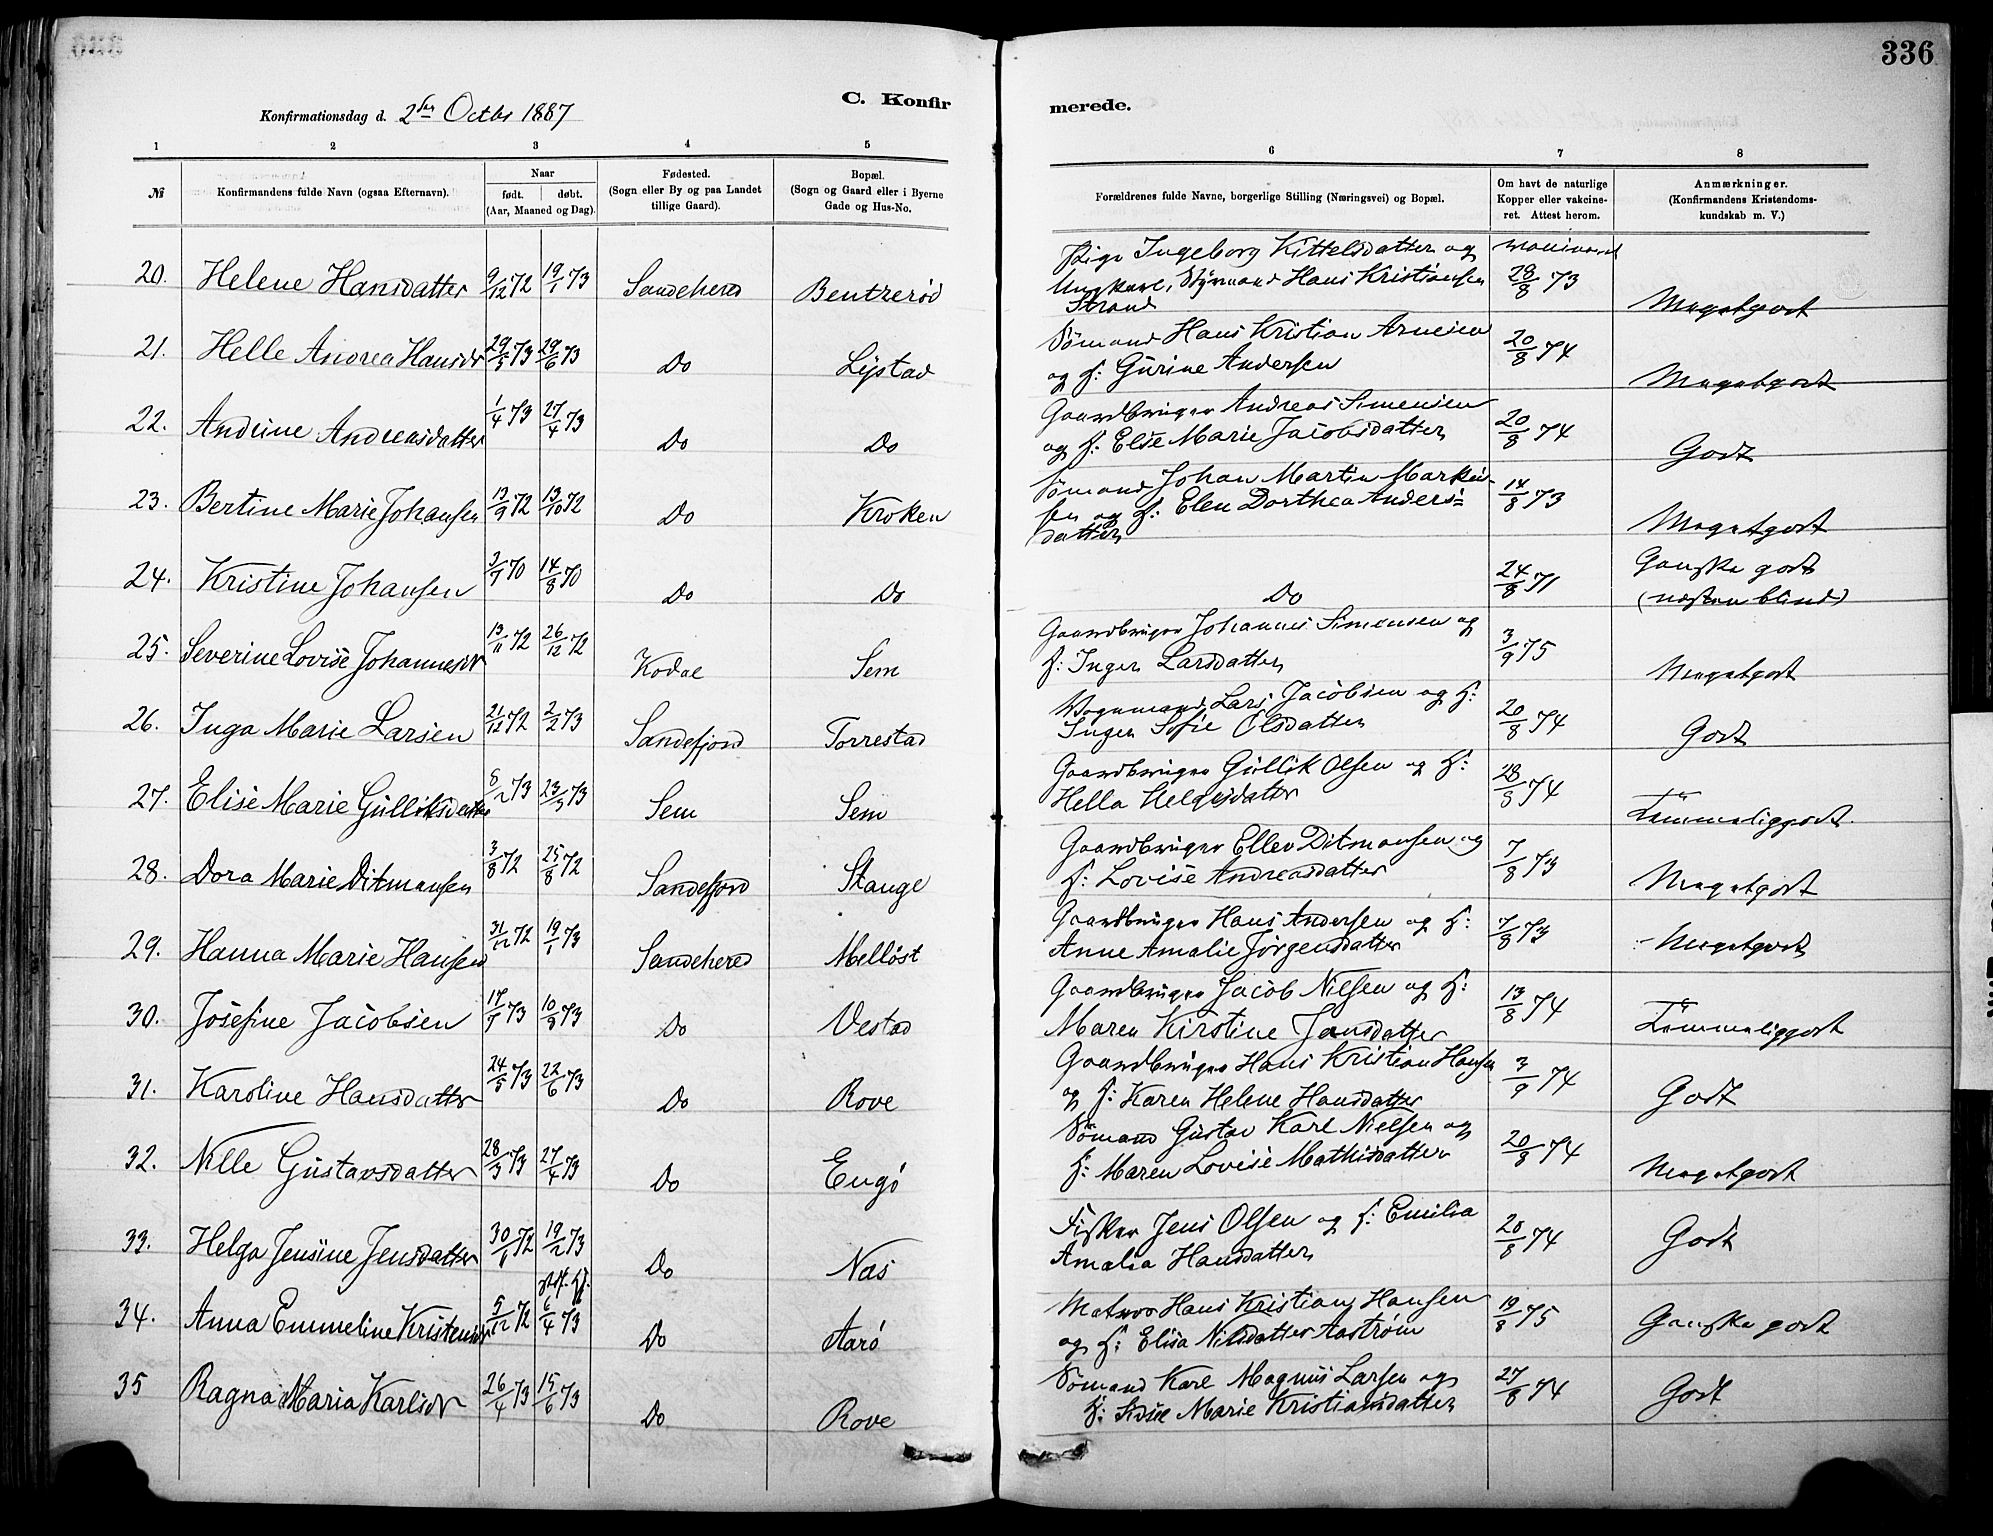 336
C. Konfir
merede.
Konfirmationsdag d. 2den Octbr 1887
1 2 3 4 5 6 7 8
№
Konfirmandens fulde Navn (ogsaa Efternavn).
Naar
født. døbt.
(Aar, Maaned og Dag).
Fødested.
(Sogn eller By og paa Landet
tillige Gaard).
Bopæl.
(Sogn og Gaard eller i Byerne
Gade og Hus-No.
Forældrenes fulde Navne, borgerlige Stilling (Næringsvei) og Bopæl.
Om havt de naturlige
Kopper eller vakcine-
ret. Attest herom.
Anmærkninger.
(Konfirmandens Kristendoms-
kundskab m. V.)
20. Helene Hansdatter 9/12 72 19/1 73 Sandeherd Bentzerød
Pige Ingeborg Kittelsdatter og
Ungkarl, Styrmand Hans Kristiansen
Strand
28/8 73 Megetgodt
21. Helle Andrea Hansdr 29/5 73 29/6 73 Do Lystad
Sømand Hans Kristian Arnesen
og H: Gurine Andersen
20/8 74 Megetgodt
22. Andrine Andreasdatter 1/4 73 27/4 73 Do Do
Gaardbruger Andreas Simensen
og H: Elise Marie Jacobsdatter
20/8 74 Godt
23. Bertine Marie Johansen 13/9 72 13/10 72 Do Kroken
Sømand Johan Martin Markus-
sen og H: Elen Dorthea Anders-
datter
14/8 73 Megetgodt
24. Kristine Johansen 3/7 70 14/8 70 Do Do
Do
24/8 71 Ganske godt
(næsten blind)
25. Severine Lovise Johannesdr 13/11 72 26/12 72 Kodal Sem
Gaardbruger Johannes Simensen og
H: Inger Larsdatter
3/9 75 Megetgodt
26. Inga Marie Larsen 21/12 72 2/2 73 Sandefjord Torrestad
Vognmand Lars Jacobsen og H:
Inger Sofie Olsdatter
20/8 74 Godt
27. Elise Marie Gulliksdatter 8/2 73 23/3 73 Sem Sem
Gaardbruger Gullik Olsen og H:
Hella Helgesdatter
28/8 74 Temmeliggodt.
28. Dora Marie Ditmansen 3/8 72 25/8 72 Sandefjord Skauge
Gaardbruger Ellev Ditmansen og
H: Lovise Andreasdatter
7/8 73 Megetgodt
29. Hanna Marie Hansen 31/12 72 19/1 73 Sandeherd Melløst
Gaardbruger Hans Andersen og H:
Anne Amalie Jørgensdatter
7/8 73 Megetgodt
30. Josefine Jacobsen 17/7 73 10/8 73 Do Vestad
Gaardbruger Jacob Nilsen og H:
Maren Kirstine Jansdatter
13/8 74 Temmeliggodt
31. Karoline Hansdatter 24/5 73 22/6 73 Do Rove
Gaardbruger Hans Kristian Hansen
og H: Karen Helene Hansdatter
3/9 74 Godt
32. Nille Gustavsdatter 28/3 73 27/4 73 Do Engø
Sømand Gustav Karl Nielsen og
H: Maren Lovise Mathisdatter
20/8 74 Megetgodt
33. Helga Jensine Jensdatter 30/6 72 19/2 73 Do Næs
Fisker Jens Olsen og H: Emilia
Amalia Hansdatter
20/8 74 Godt
34. Anna Emmeline Kristensdr 5/12 72 6/4 73 Do Aarø
Matros Hans Kristian Hansen
og H: Elisa Nilsdatter Aastrøm
19/8 75 Ganske godt
35 Ragna Maria Karlsdr 26/4 73 15/6 73 Do Rove
Sømand Karl Magnus Larsen og
H: Marie Kristiansdatter
27/8 74 Godt